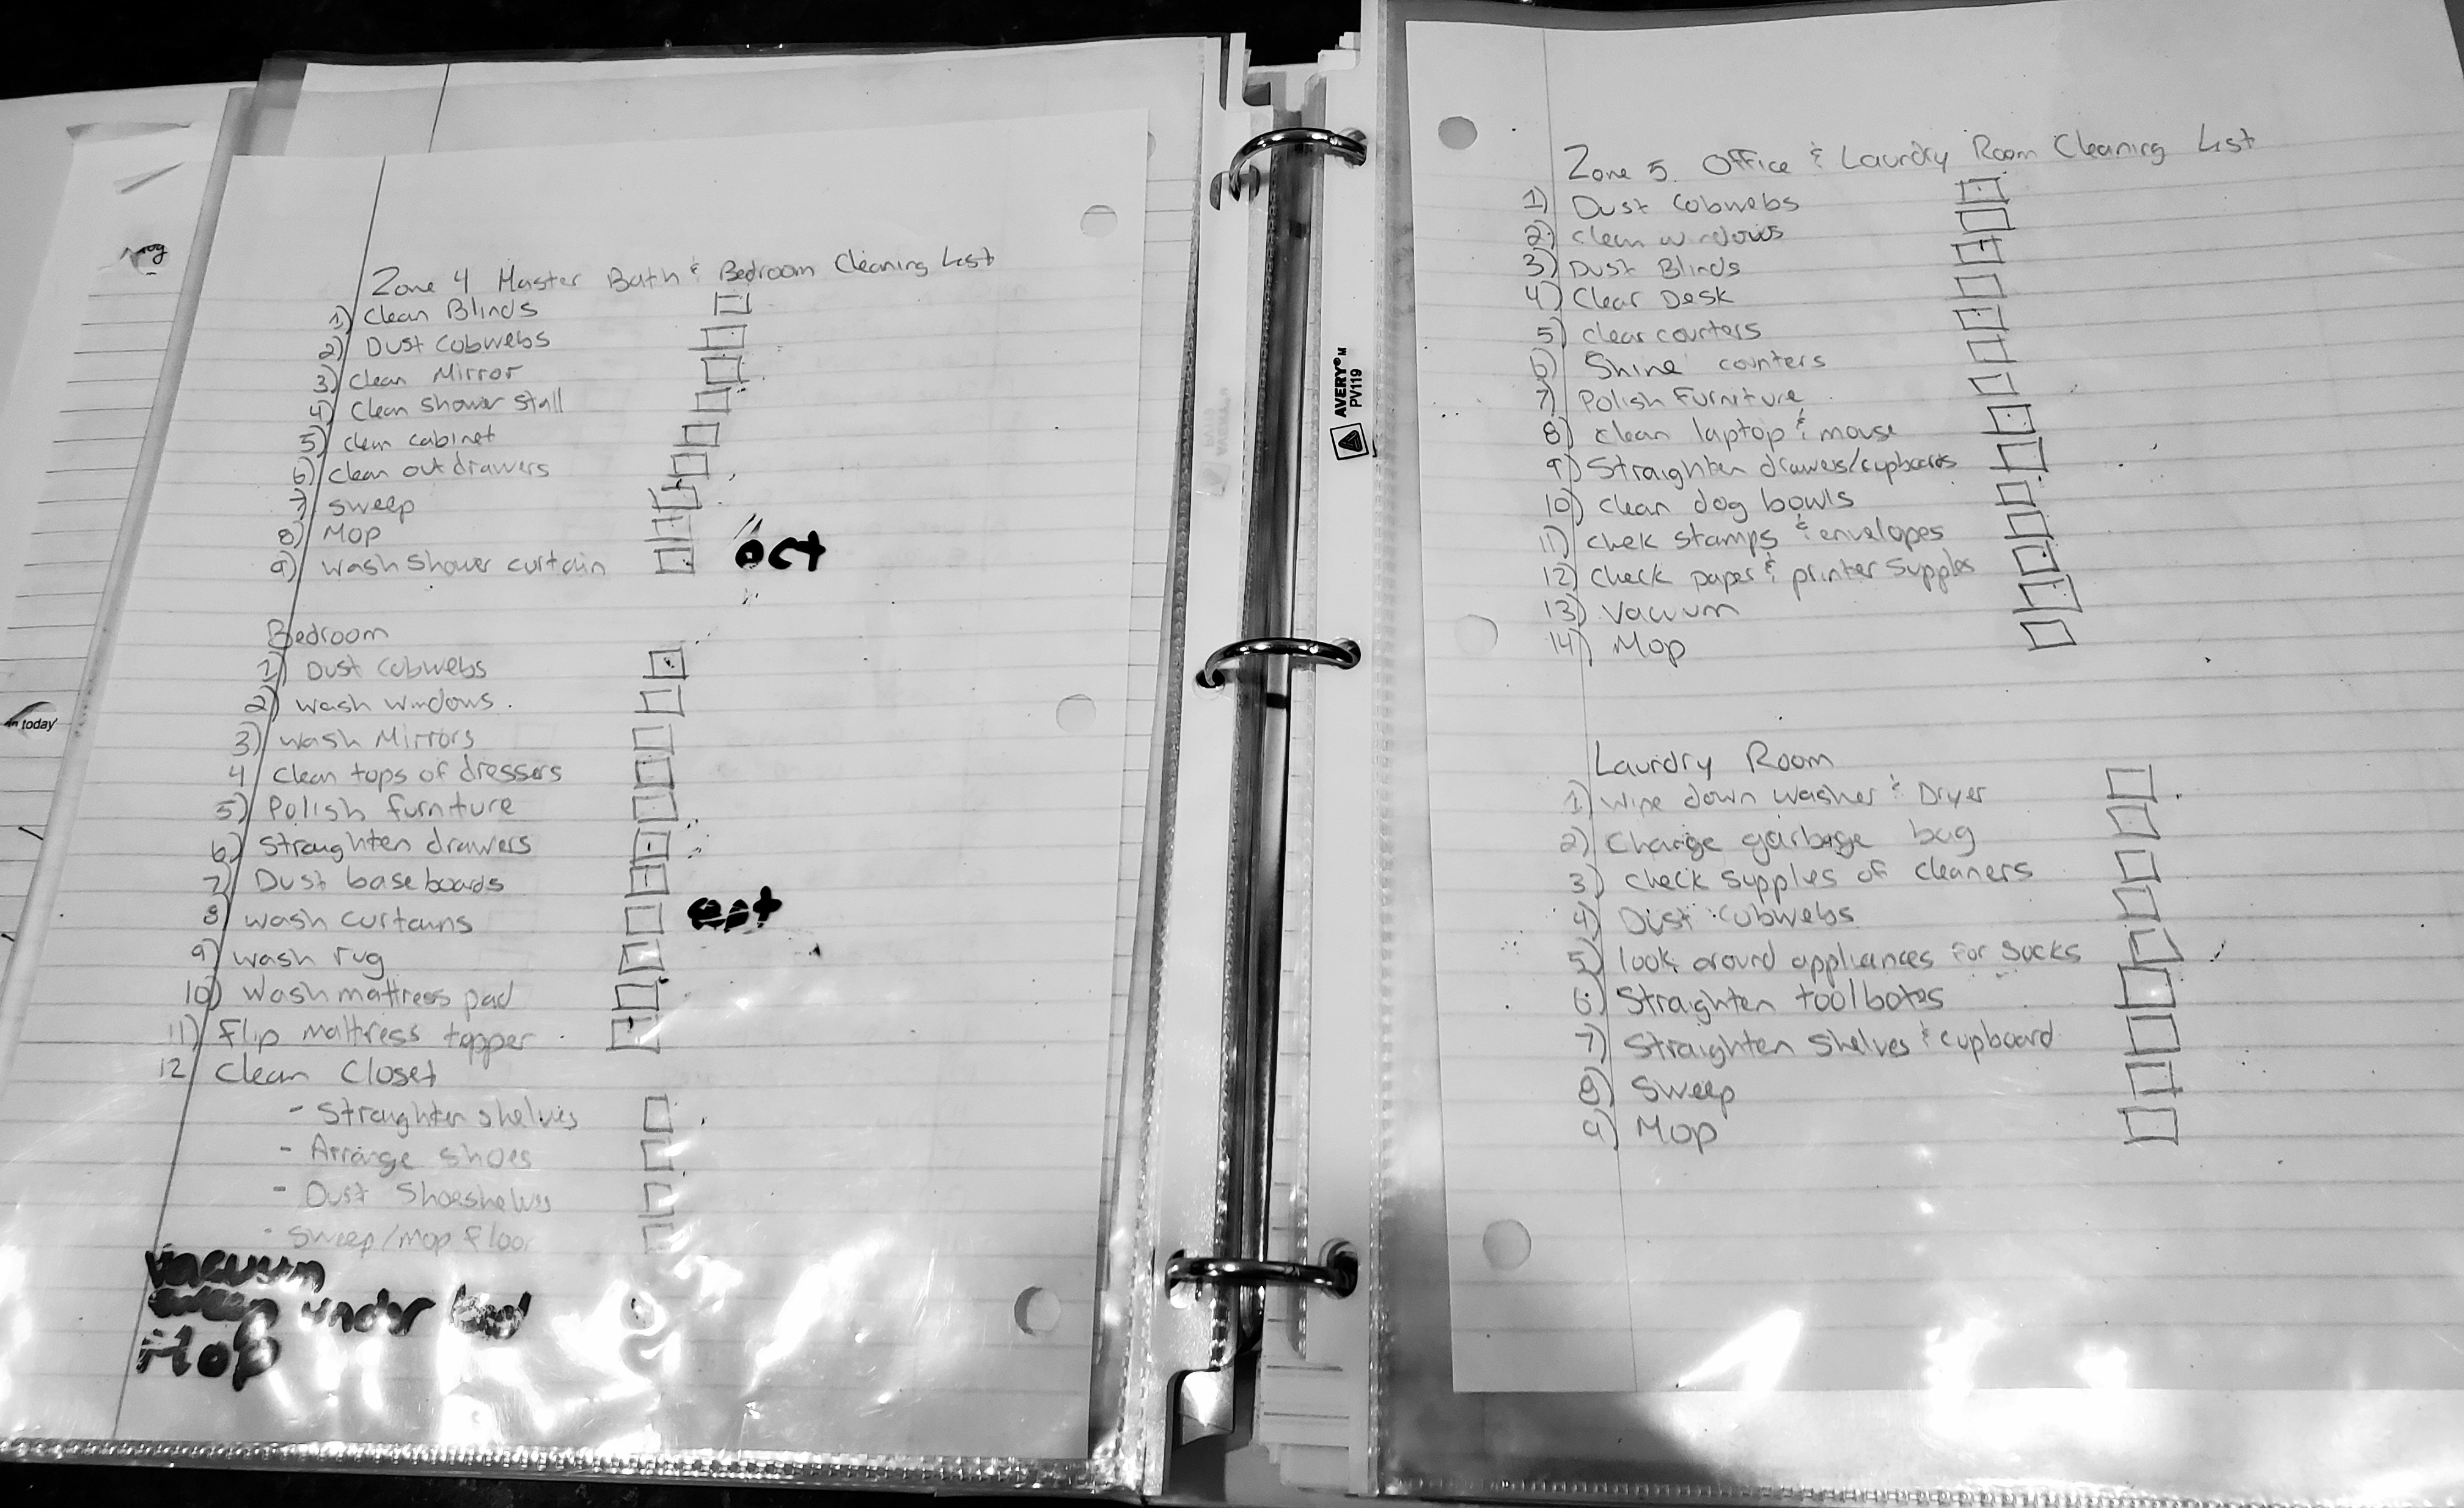 today
Zone 4 Master Bath & Bedroom Cleaning List
1) Clean Blinds
2) Dust Cobwebs
3) Clean Mirror
4) Clean shower stall
5) clean cabinet
6) clean out drawers
7) Sweep
8) Mop
9) wash shower curtain oct
Bedroom
1) Dust cobwebs
2) wash windows.
3) wash Mirrors
4 Clean tops of dressers
5) Polish furniture
6) Straighten drawers
7) Dust baseboards
8) wash curtains
9) wash rug
10) Wash mattress pad
11) Flip mattress topper
12 Clean Closet
- Straighten shelves
- Arrange shoes
- Dust Shoeshelves
- Sweep/mop floor
Vacuum
sweep under bed
Mop
AVERY® M
PV119
Zone 5. Office & Laundry Room Cleaning List
1) Dust Cobwebs
2) clean windows
3) Dust Blinds
4) Clear Desk
5) clear counters
6) Shine counters
7) Polish Furniture
8) clean laptop & mouse
9) Straighten drawers/cupboards
10) clean dog bowls
11) chek stamps & envelopes
12) check paper & printer Supples
13) Vacuum
14) Mop
Laundry Room
1) wipe down washer & Dryer
2) Change garbage bag
3) check supplies of cleaners
4) Dust cubwebs
5) look around appliances for Socks
6) Straighten toolbotes
7) Straighten Shelves & cupboard
8) Sweep
9) Mop